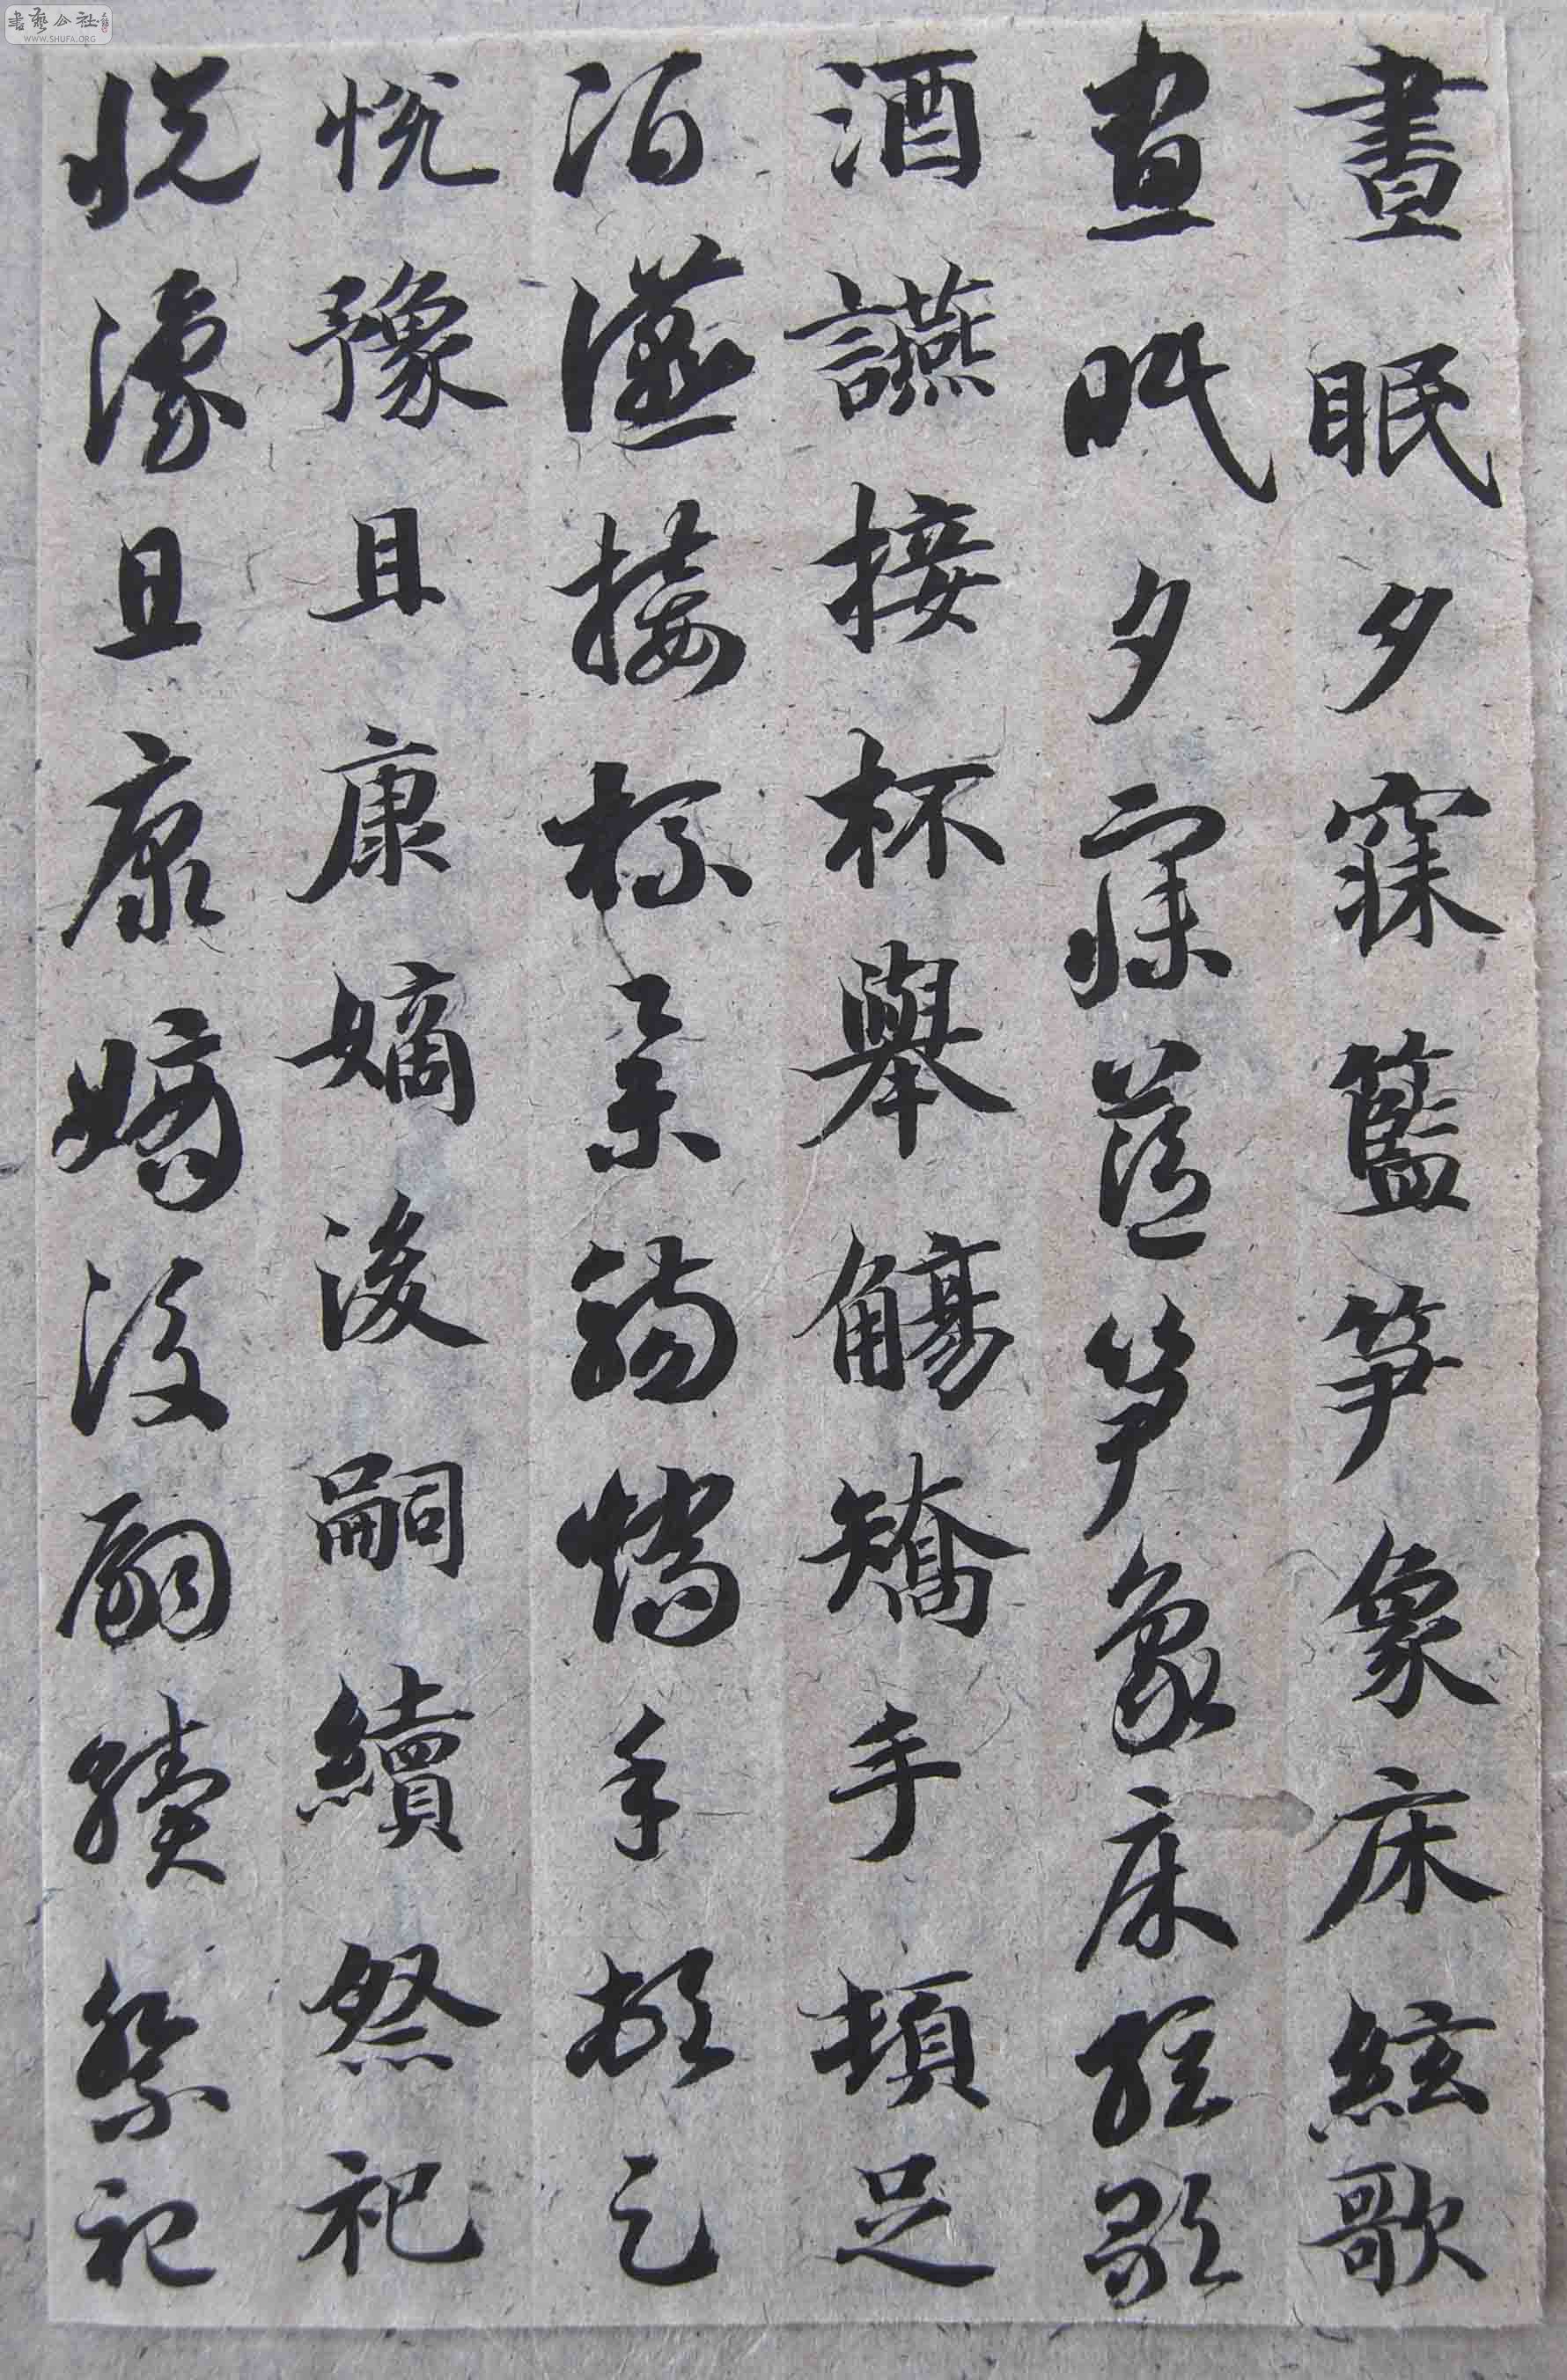 晝眠夕寐籃笋象床絃歌
晝眠夕寐藍笋象床絃歌
酒讌接杯舉觴矯手頓足
酒讌接杯舉觴矯手頓足
悅豫且康嫡後嗣續祭祀
悅豫且康嫡後嗣續祭祀
書藝公社
WWW.SHUFA.ORG